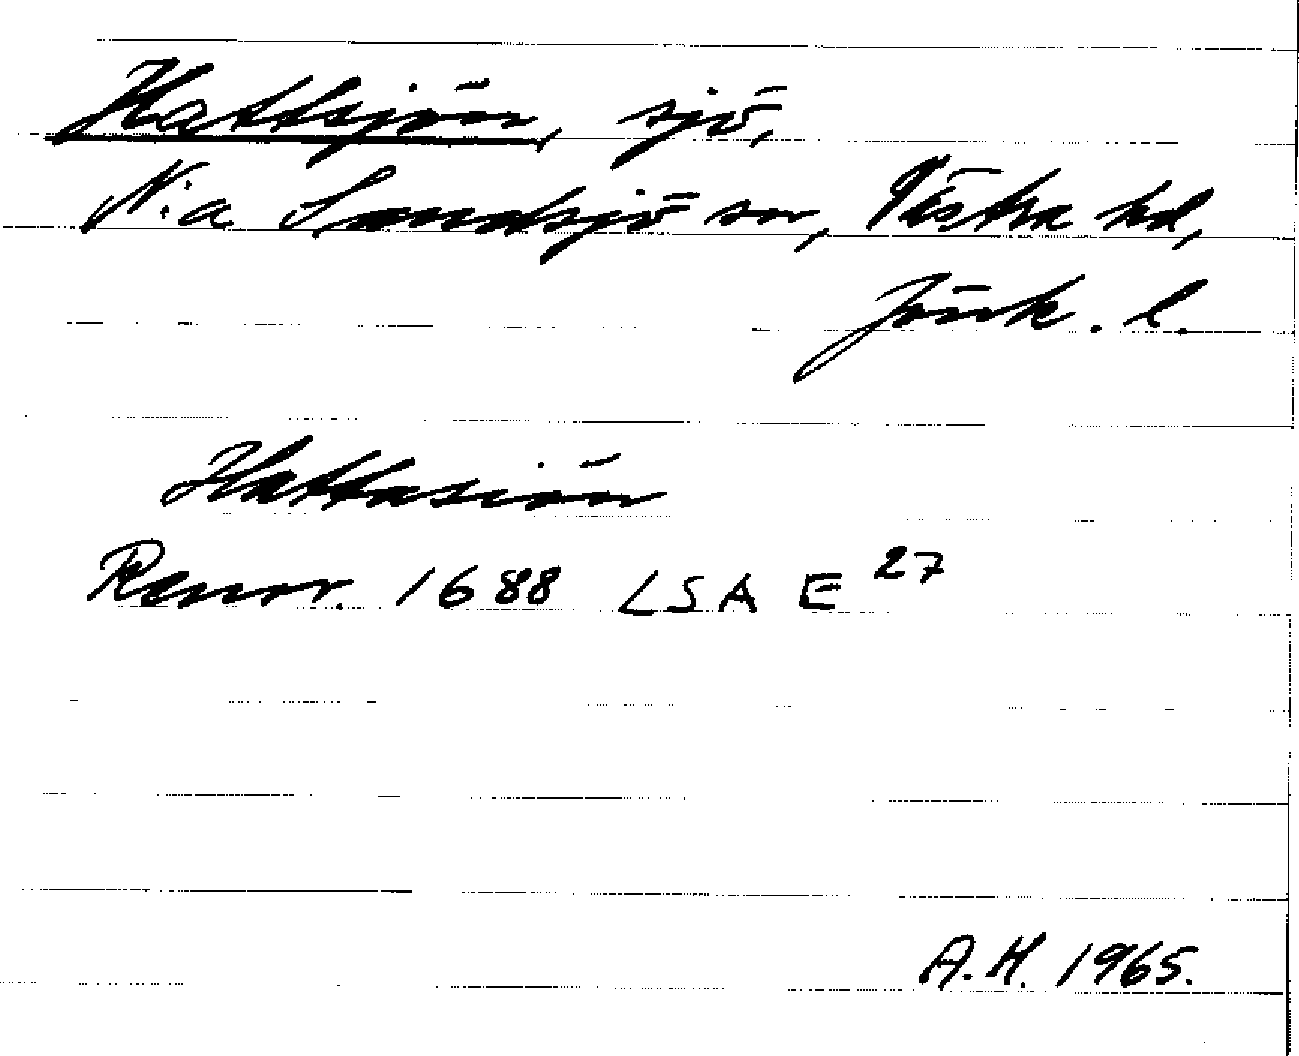 Hattsjön, sjö,
N:a Sandsjö sn, Västra hd,
Jönk. l.
Hattasiön
Rannr. 1688 LSA E 27
A.H. 1965.